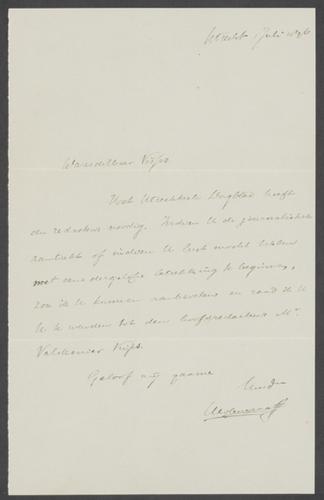 Utrecht 1 Juli 1896
Waardeltheer Vrijse.
Het Utrechtsch Dagblad heeft
een redacteur noodig. Indien U de journalistiek
aantrekt of indien U lust mocht hebben
met een dergelijke betrekking te beginnen,
zou ik U kunnen aanbevelen en raad ik U
U te wenden tot den hoofdredacteur Mr
Valckenier Kips.
Geloof mij gaarne
Uw